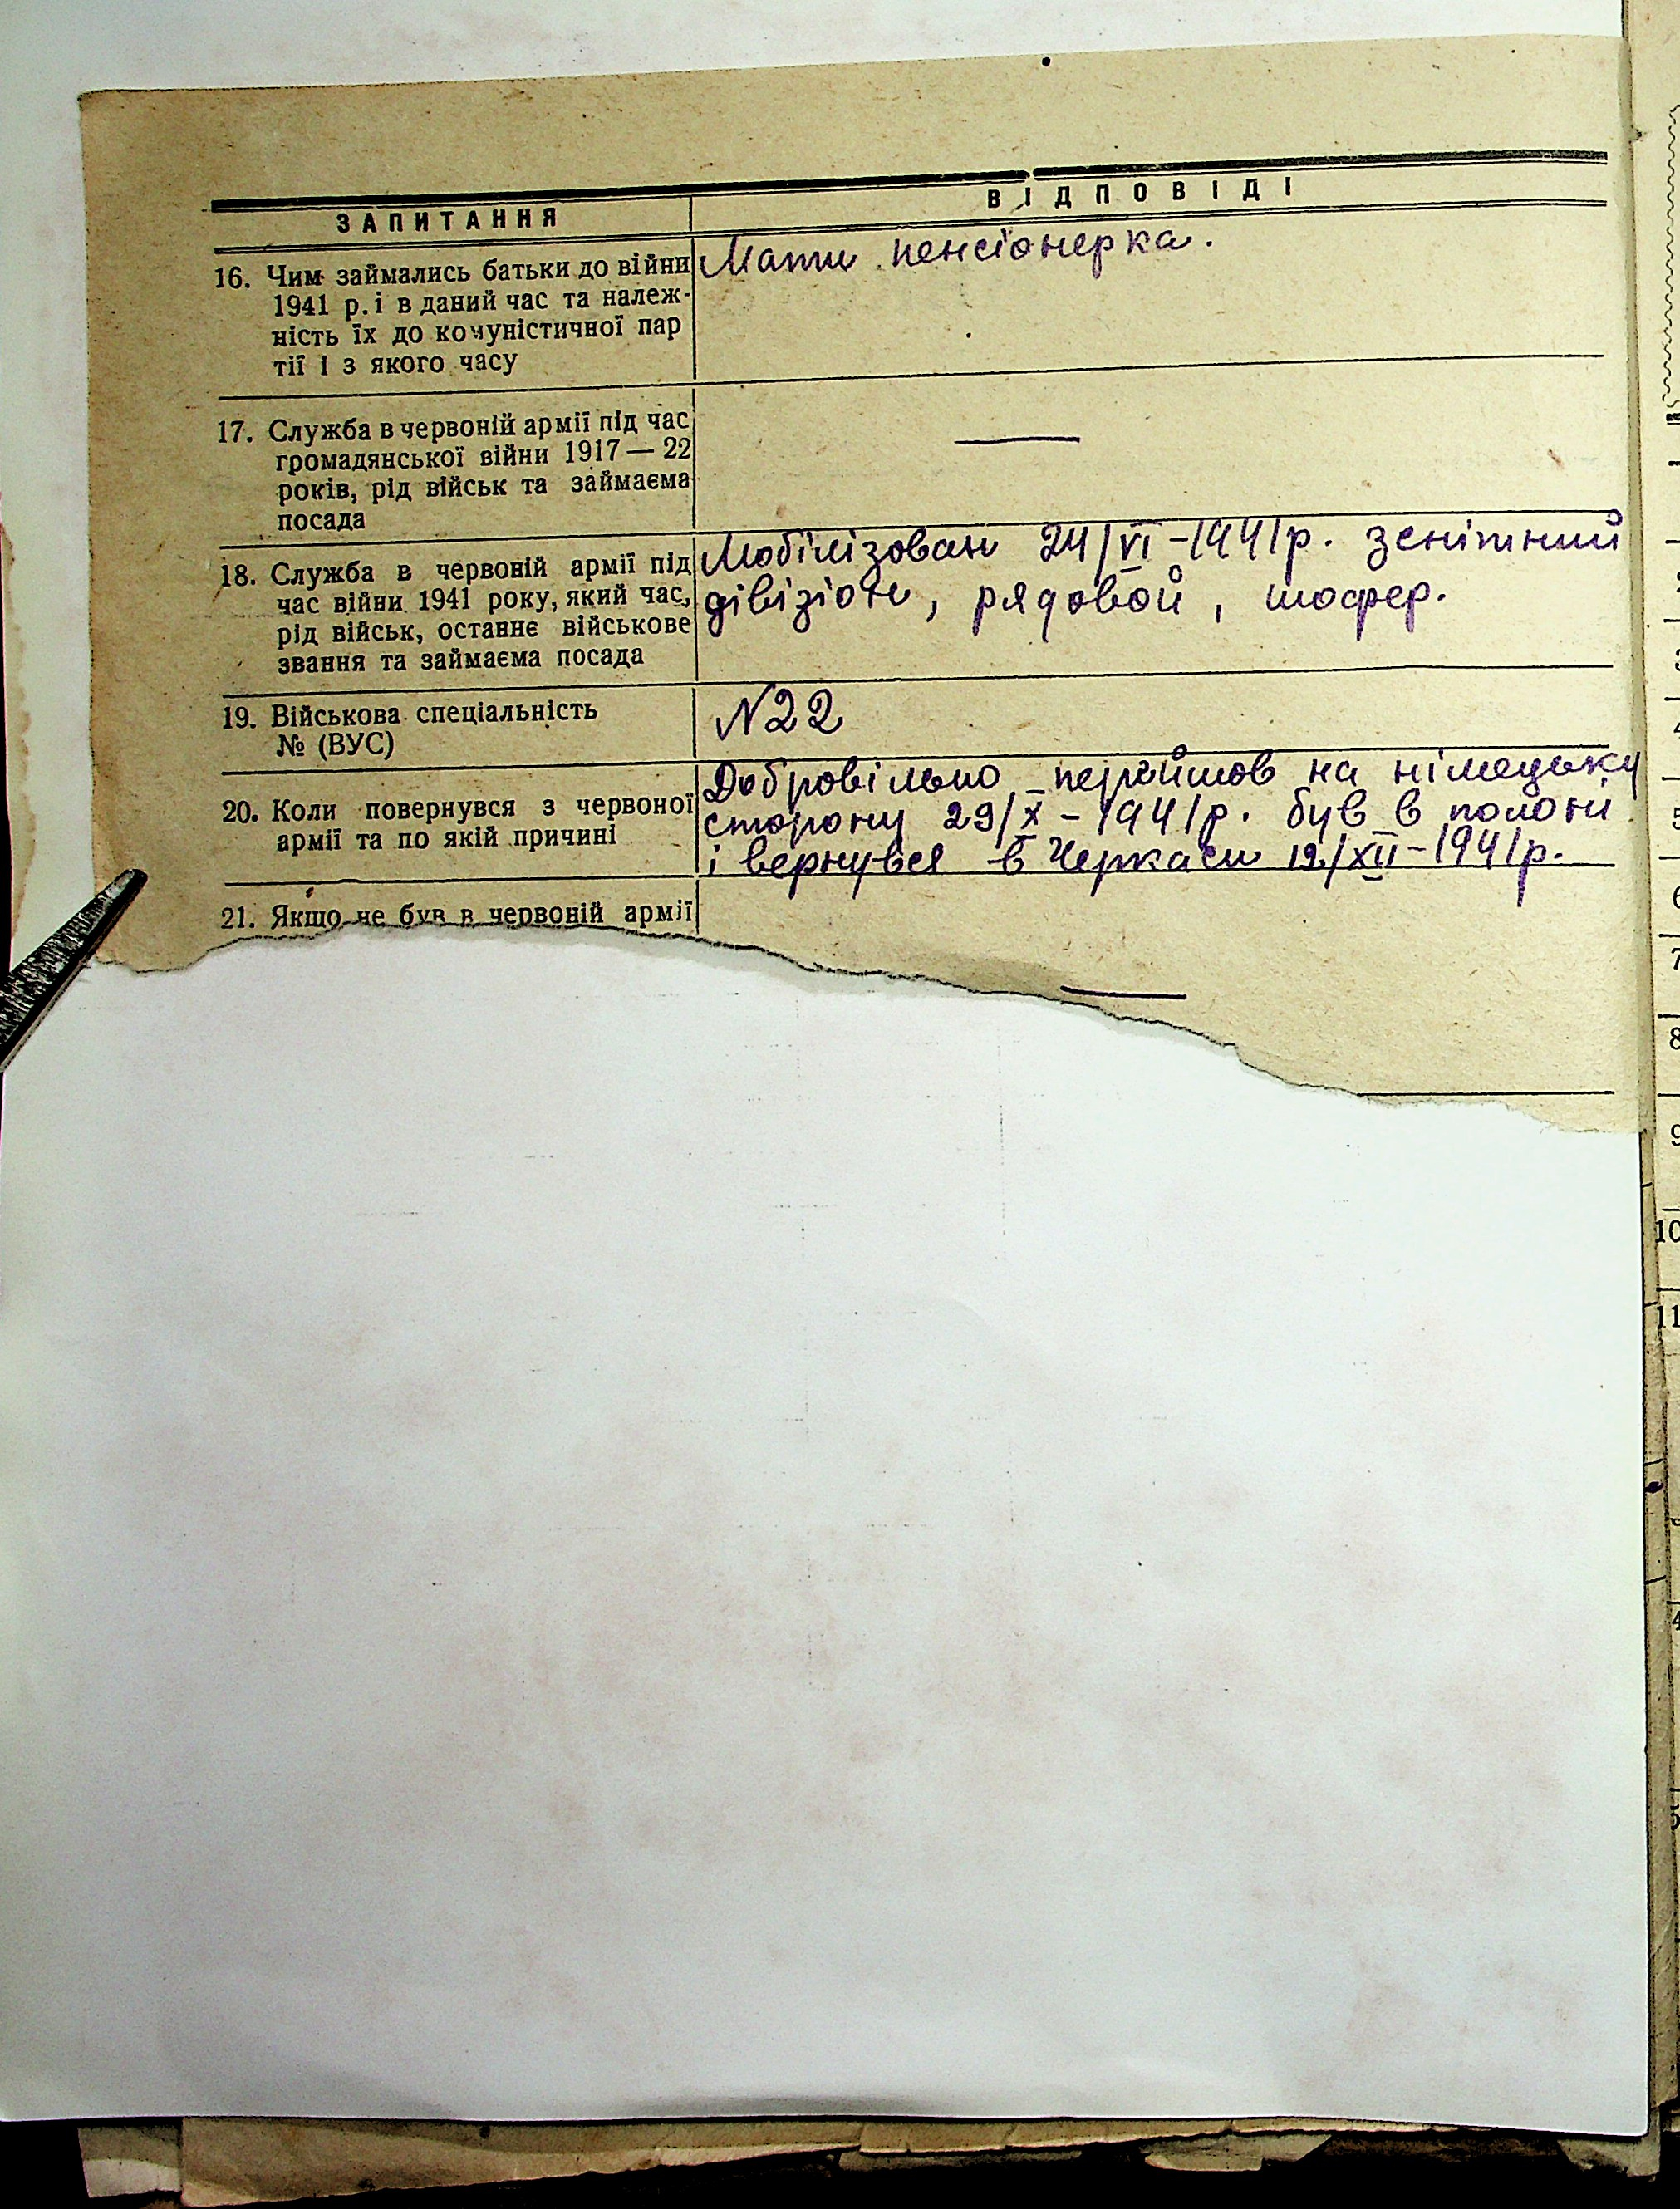 ЗАПИТАННЯ
ВІДПОВІДІ
16. Чим займались батьки до війни
1941 р. і в даний час та належ-
ність їх до комуністичної пар
тії і з якого часу
Мати пенсіонерка.
17. Служба в червоній армії під час
громадянської війни 1917 — 22
років, рід військ та займаєма
посада
—
18. Служба в червоній армії під
час війни 1941 року, який час,
рід військ, останнє військове
звання та займаєма посада
Мобілізован 24/VI-1941р. зенітний
дівізіон, рядовой, шофер.
19. Військова спеціальність
№ (ВУС)
N22
20. Коли повернувся з червоної
армії та по якій причині
Добровільно перейшов на німецьку
сторону 29/X-1941р. був в полоні
і вернувся в Черкаси 12/XII-1941р.
21. Якщо не був в червоній армії
—
4
5
6
7
8
9
10
11